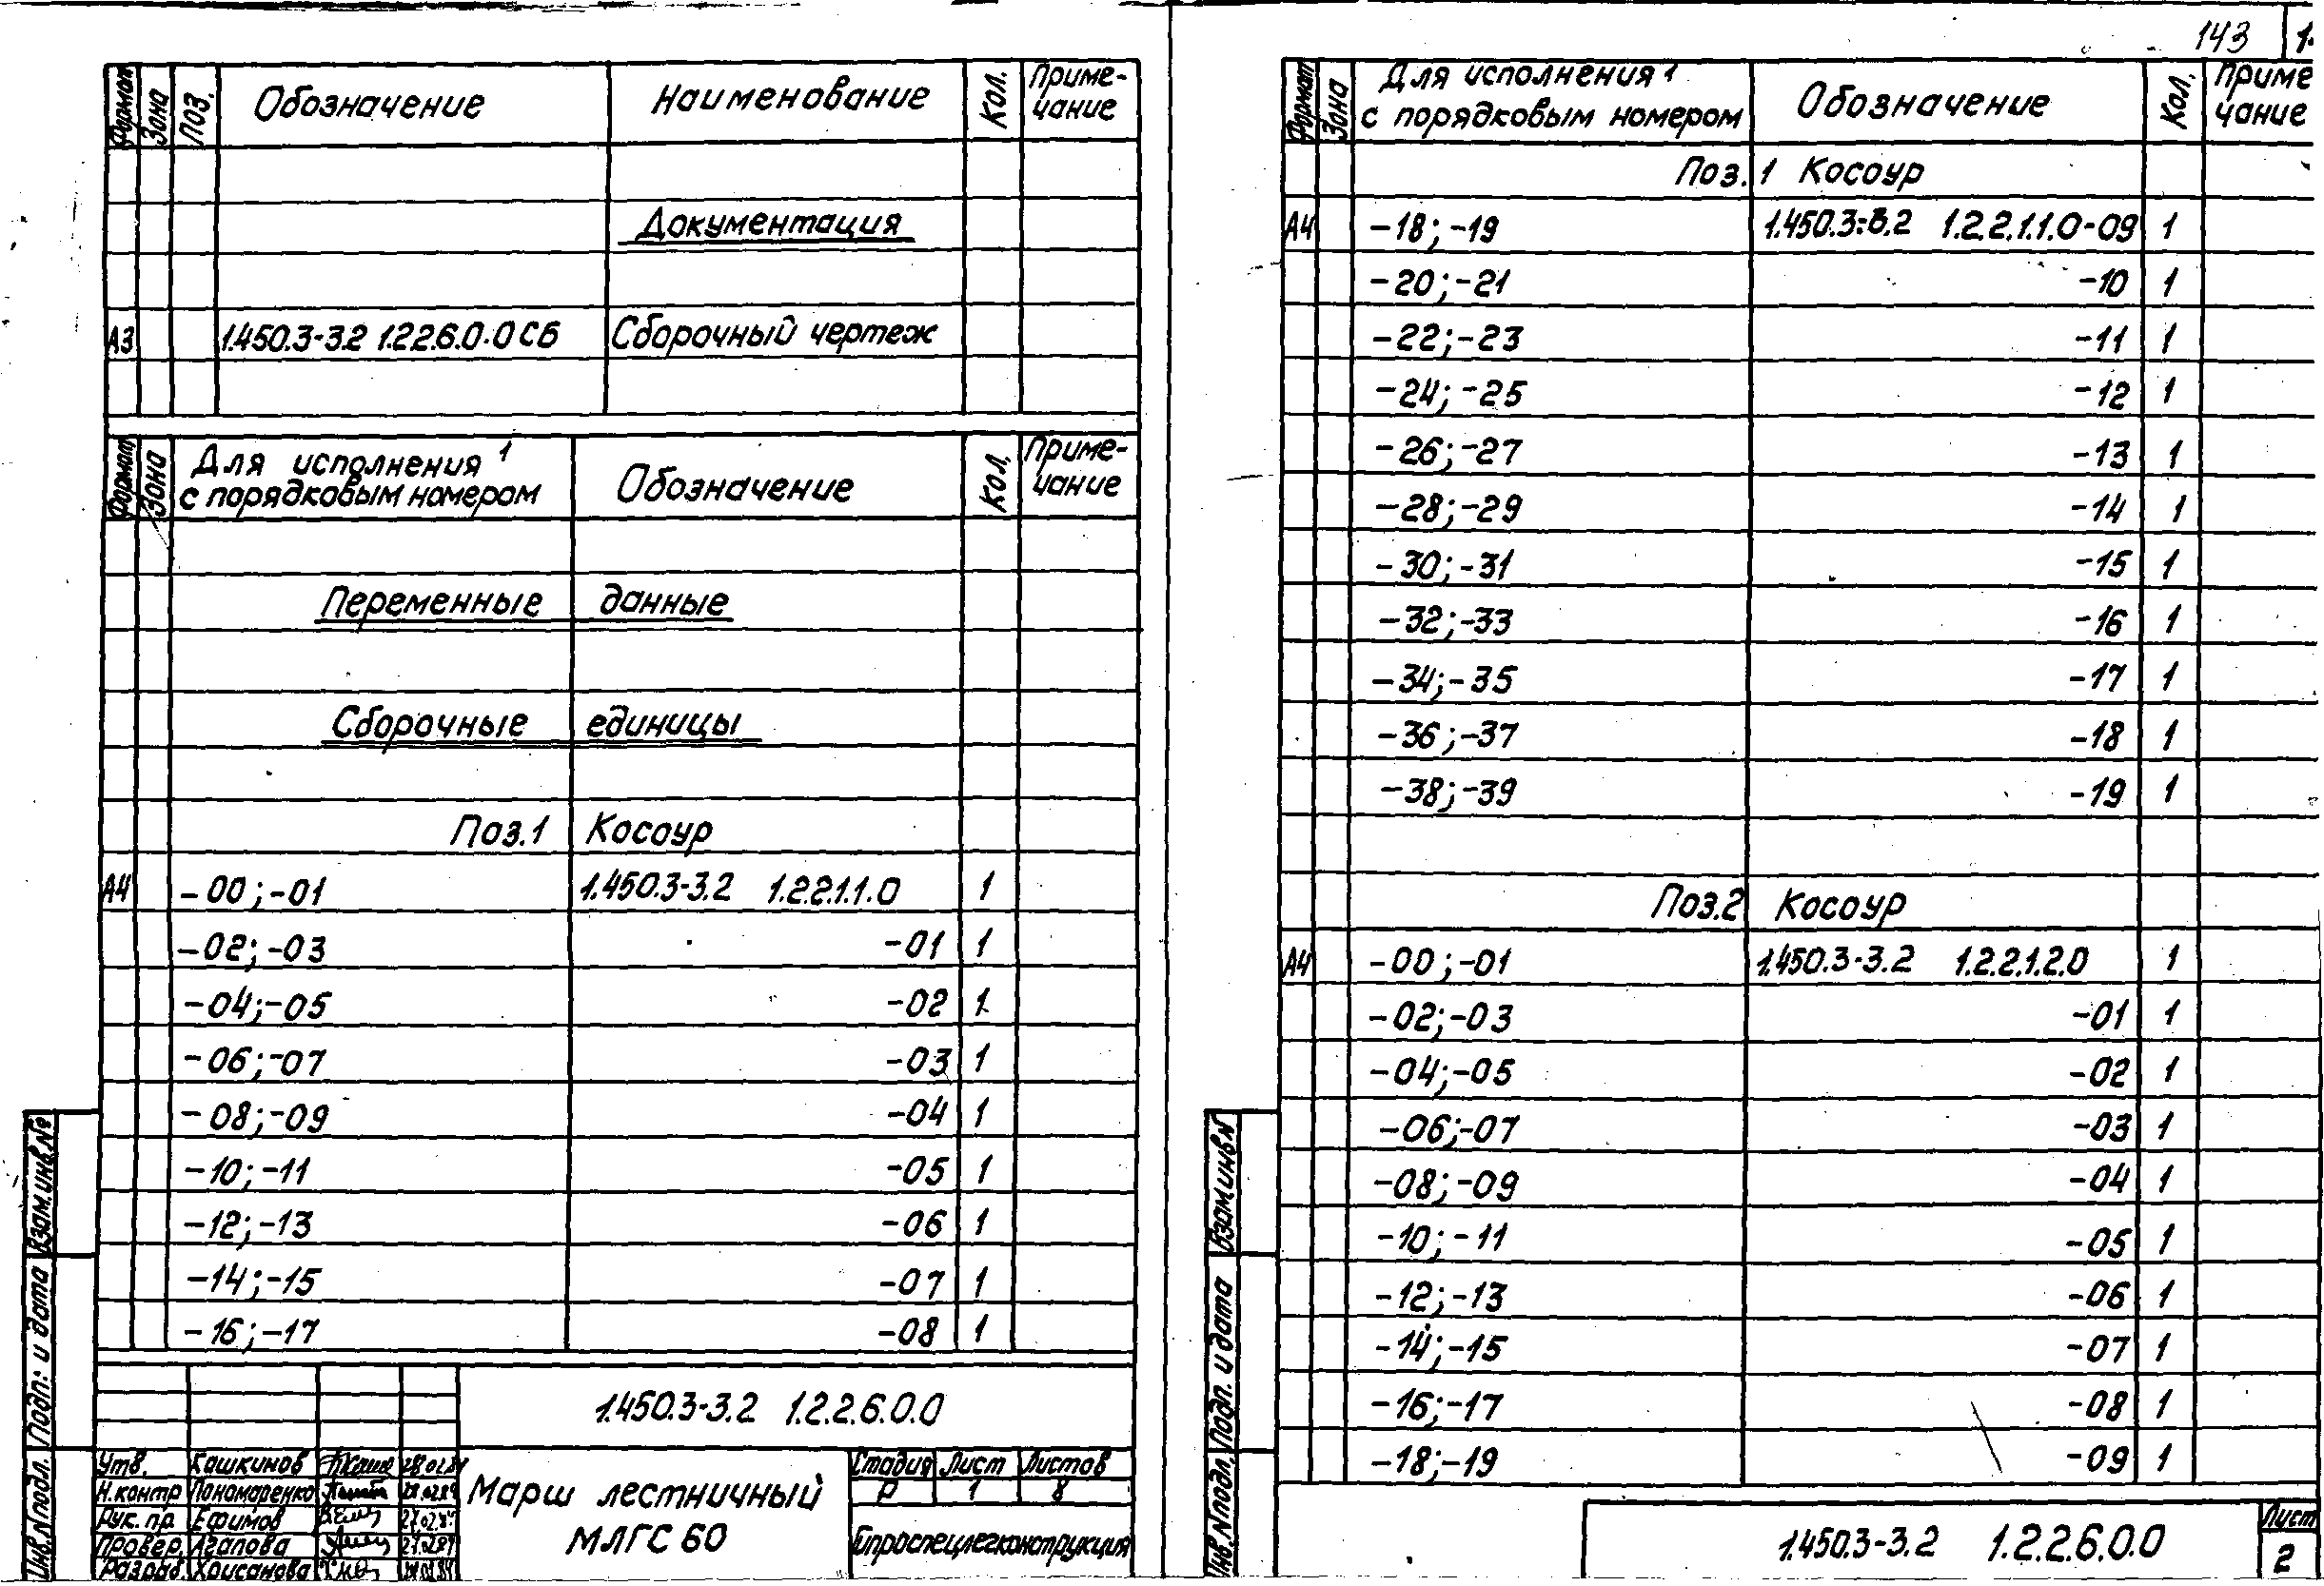 Формат Зона Поз. Обозначение Наименование Кол. Приме-
чание
Документация
А3 1.450.3-3.2 1.2.2.6.0.0СБ Сборочный чертеж
Формат Зона Для исполнения 1 Обозначение Кол. Приме-
с порядковым номером чание
Переменные данные
Сборочные единицы
Поз.1 Косоур
А4 -00;-01 1.450.3-3.2 1.2.2.1.1.0 1
-02;-03 -01 1
-04;-05 -02 1
-06;-07 -03 1
-08;-09 -04 1
-10;-11 -05 1
-12;-13 -06 1
-14;-15 -07 1
-16;-17 -08 1
1.450.3-3.2 1.2.2.6.0.0
Утв. Кашкинов
Н.контр Пономаренко
Рук. пр. Ефимов
Провер. Агапова
Разраб. Хрисанова
Марш лестничный
МЛГС 60
Стадия Лист Листов
Р 1 8
Гипроспецлегконструкция
Взам.инв.№
Подп. и дата
Инв.N подл.
143 1.
Формат Зона Для исполнения 1 Обозначение Кол. Приме
с порядковым номером чание
Поз.1 Косоур
А4 -18;-19 1.450.3-3.2 1.2.2.1.1.0-09 1
-20;-21 -10 1
-22;-23 -11 1
-24;-25 -12 1
-26;-27 -13 1
-28;-29 -14 1
-30;-31 -15 1
-32;-33 -16 1
-34;-35 -17 1
-36;-37 -18 1
-38;-39 -19 1
Поз.2 Косоур
А4 -00;-01 1.450.3-3.2 1.2.2.1.2.0 1
-02;-03 -01 1
-04;-05 -02 1
-06;-07 -03 1
-08;-09 -04 1
-10;-11 -05 1
-12;-13 -06 1
-14;-15 -07 1
-16;-17 -08 1
-18;-19 -09 1
1.450.3-3.2 1.2.2.6.0.0
Лист
2
Взам.инв.N
Подп. и дата
Инв.N подл.